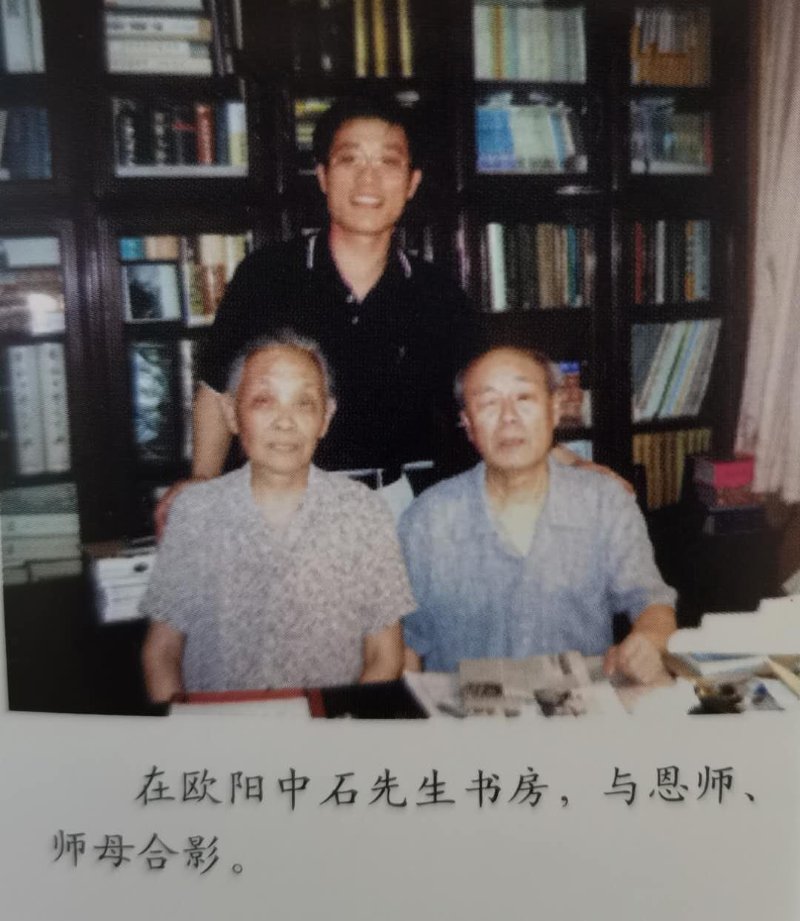 在欧阳中石先生书房，与恩师、
师母合影。